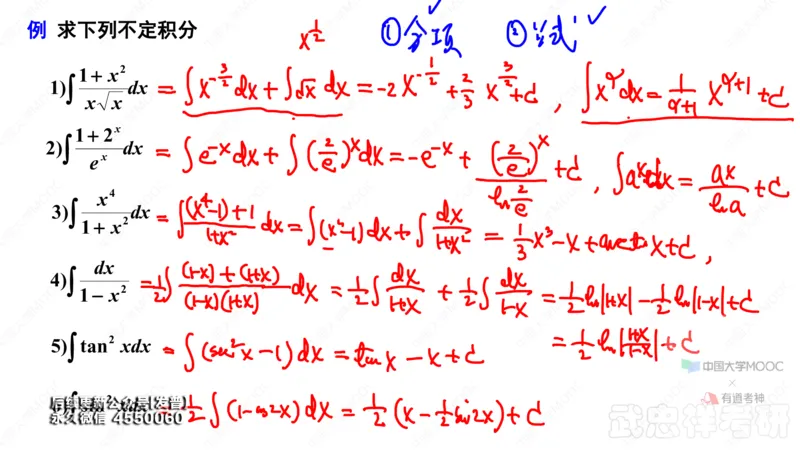 例 求下列不定积分 x^{1/2} ①分项 ✓ ②公式 ✓
1) ∫ (1+x²)/(x√x) dx = ∫x^{-3/2}dx + ∫√x dx = -2x^{-1/2} + 2/3 x^{3/2} + C , ∫x^α dx = 1/(α+1) x^{α+1} + C
2) ∫ (1+2^x)/e^x dx = ∫e^{-x}dx + ∫(2/e)^x dx = -e^{-x} + (2/e)^x / ln(2/e) + C , ∫a^x dx = a^x / ln a + C
3) ∫ x⁴/(1+x²) dx = ∫ ((x⁴-1)+1)/(1+x²) dx = ∫(x²-1)dx + ∫ dx/(1+x²) = 1/3 x³ - x + arctan x + C ,
4) ∫ dx/(1-x²) = 1/2 ∫ ((1-x)+(1+x))/((1-x)(1+x)) dx = 1/2 ∫ dx/(1+x) + 1/2 ∫ dx/(1-x) = 1/2 ln|1+x| - 1/2 ln|1-x| + C
= 1/2 ln|(1+x)/(1-x)| + C
5) ∫ tan² xdx = ∫(sec²x-1)dx = tan x - x + C
中国大学MOOC
×
有道考神
= 1/2 ∫(1-cos2x)dx = 1/2 (x - 1/2 sin2x) + C
后续更新公众号[发普]
永久微信 4550060
武忠祥考研